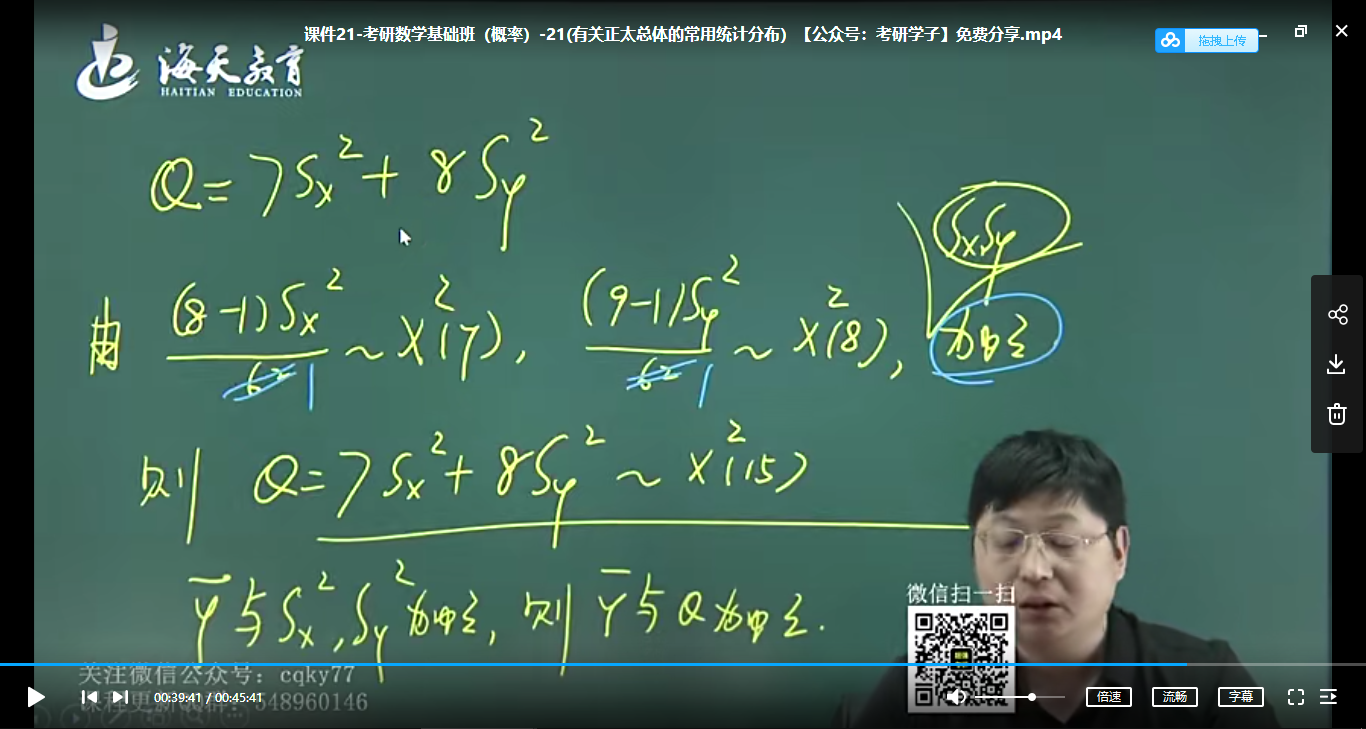 课件21-考研数学基础班（概率）-21(有关正太总体的常用统计分布) 【公众号：考研学子】免费分享.mp4
拖拽上传
海天教育
HAITIAN EDUCATION
Q = 7Sx² + 8Sy²
Sx, Sy
由 (8-1)Sx²/σ² 1 ~ χ²(7), (9-1)Sy²/σ² 1 ~ χ²(8), 独立
则 Q = 7Sx² + 8Sy² ~ χ²(15)
Ȳ与Sx², Sy²独立, 则Ȳ与Q独立.
微信扫一扫
关注微信公众号：cqky77
548960146
00:39:41 / 00:45:41
倍速
流畅
字幕